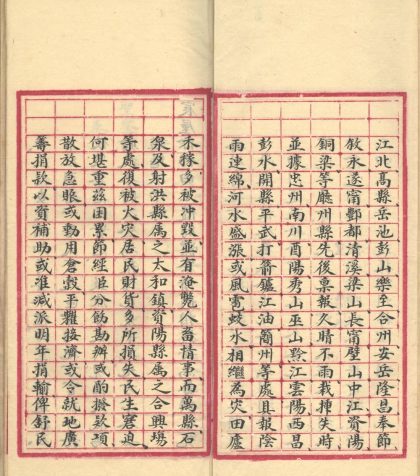 江北高縣岳池彭山樂至合州安岳隆昌奉節
敘永遂甯酆都清溪梁山長甯壁山中江資陽
銅梁等廳州縣先後稟報久晴不雨栽插失時
並據忠州南川酉陽秀山巫山黔江雲陽西昌
彭水開縣平武打箭鑪江油簡州等處具報陰
雨連綿河水盛漲或風雹蛟水相繼為灾田廬
禾稼多被冲毀並有淹斃人畜情事而萬縣石
泉及射洪縣屬之太和鎮資陽縣屬之合興場
等處復被火灾居民財貨多所損失民生窘迫
何堪重兹困累節經臣分飭勘辦或酌撥欵項
散放急賑或動用倉穀平糶接濟或合就地廣
籌捐款以資補助或准減派明年捐輸俾舒民